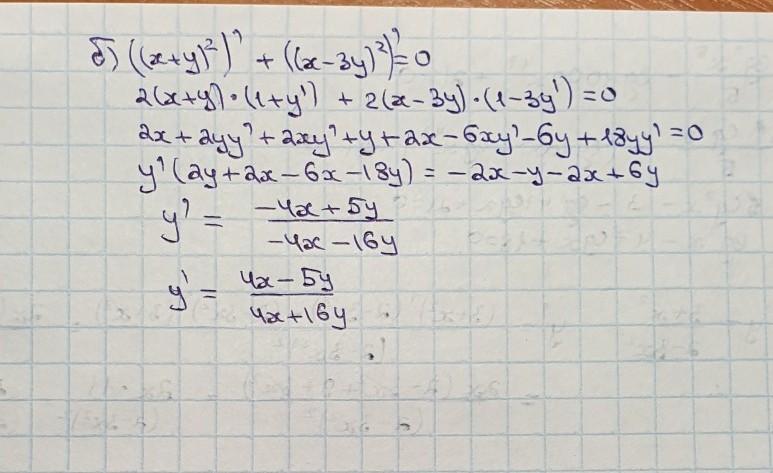 б) ((x+y)²)' + ((x-3y)²)' = 0
2(x+y)·(1+y') + 2(x-3y)·(1-3y') = 0
2x+2yy'+2xy'+y+2x-6xy'-6y+18yy' = 0
y'(2y+2x-6x-18y) = -2x-y-2x+6y
y' = (-4x+5y)/(-4x-16y)
y' = (4x-5y)/(4x+16y)